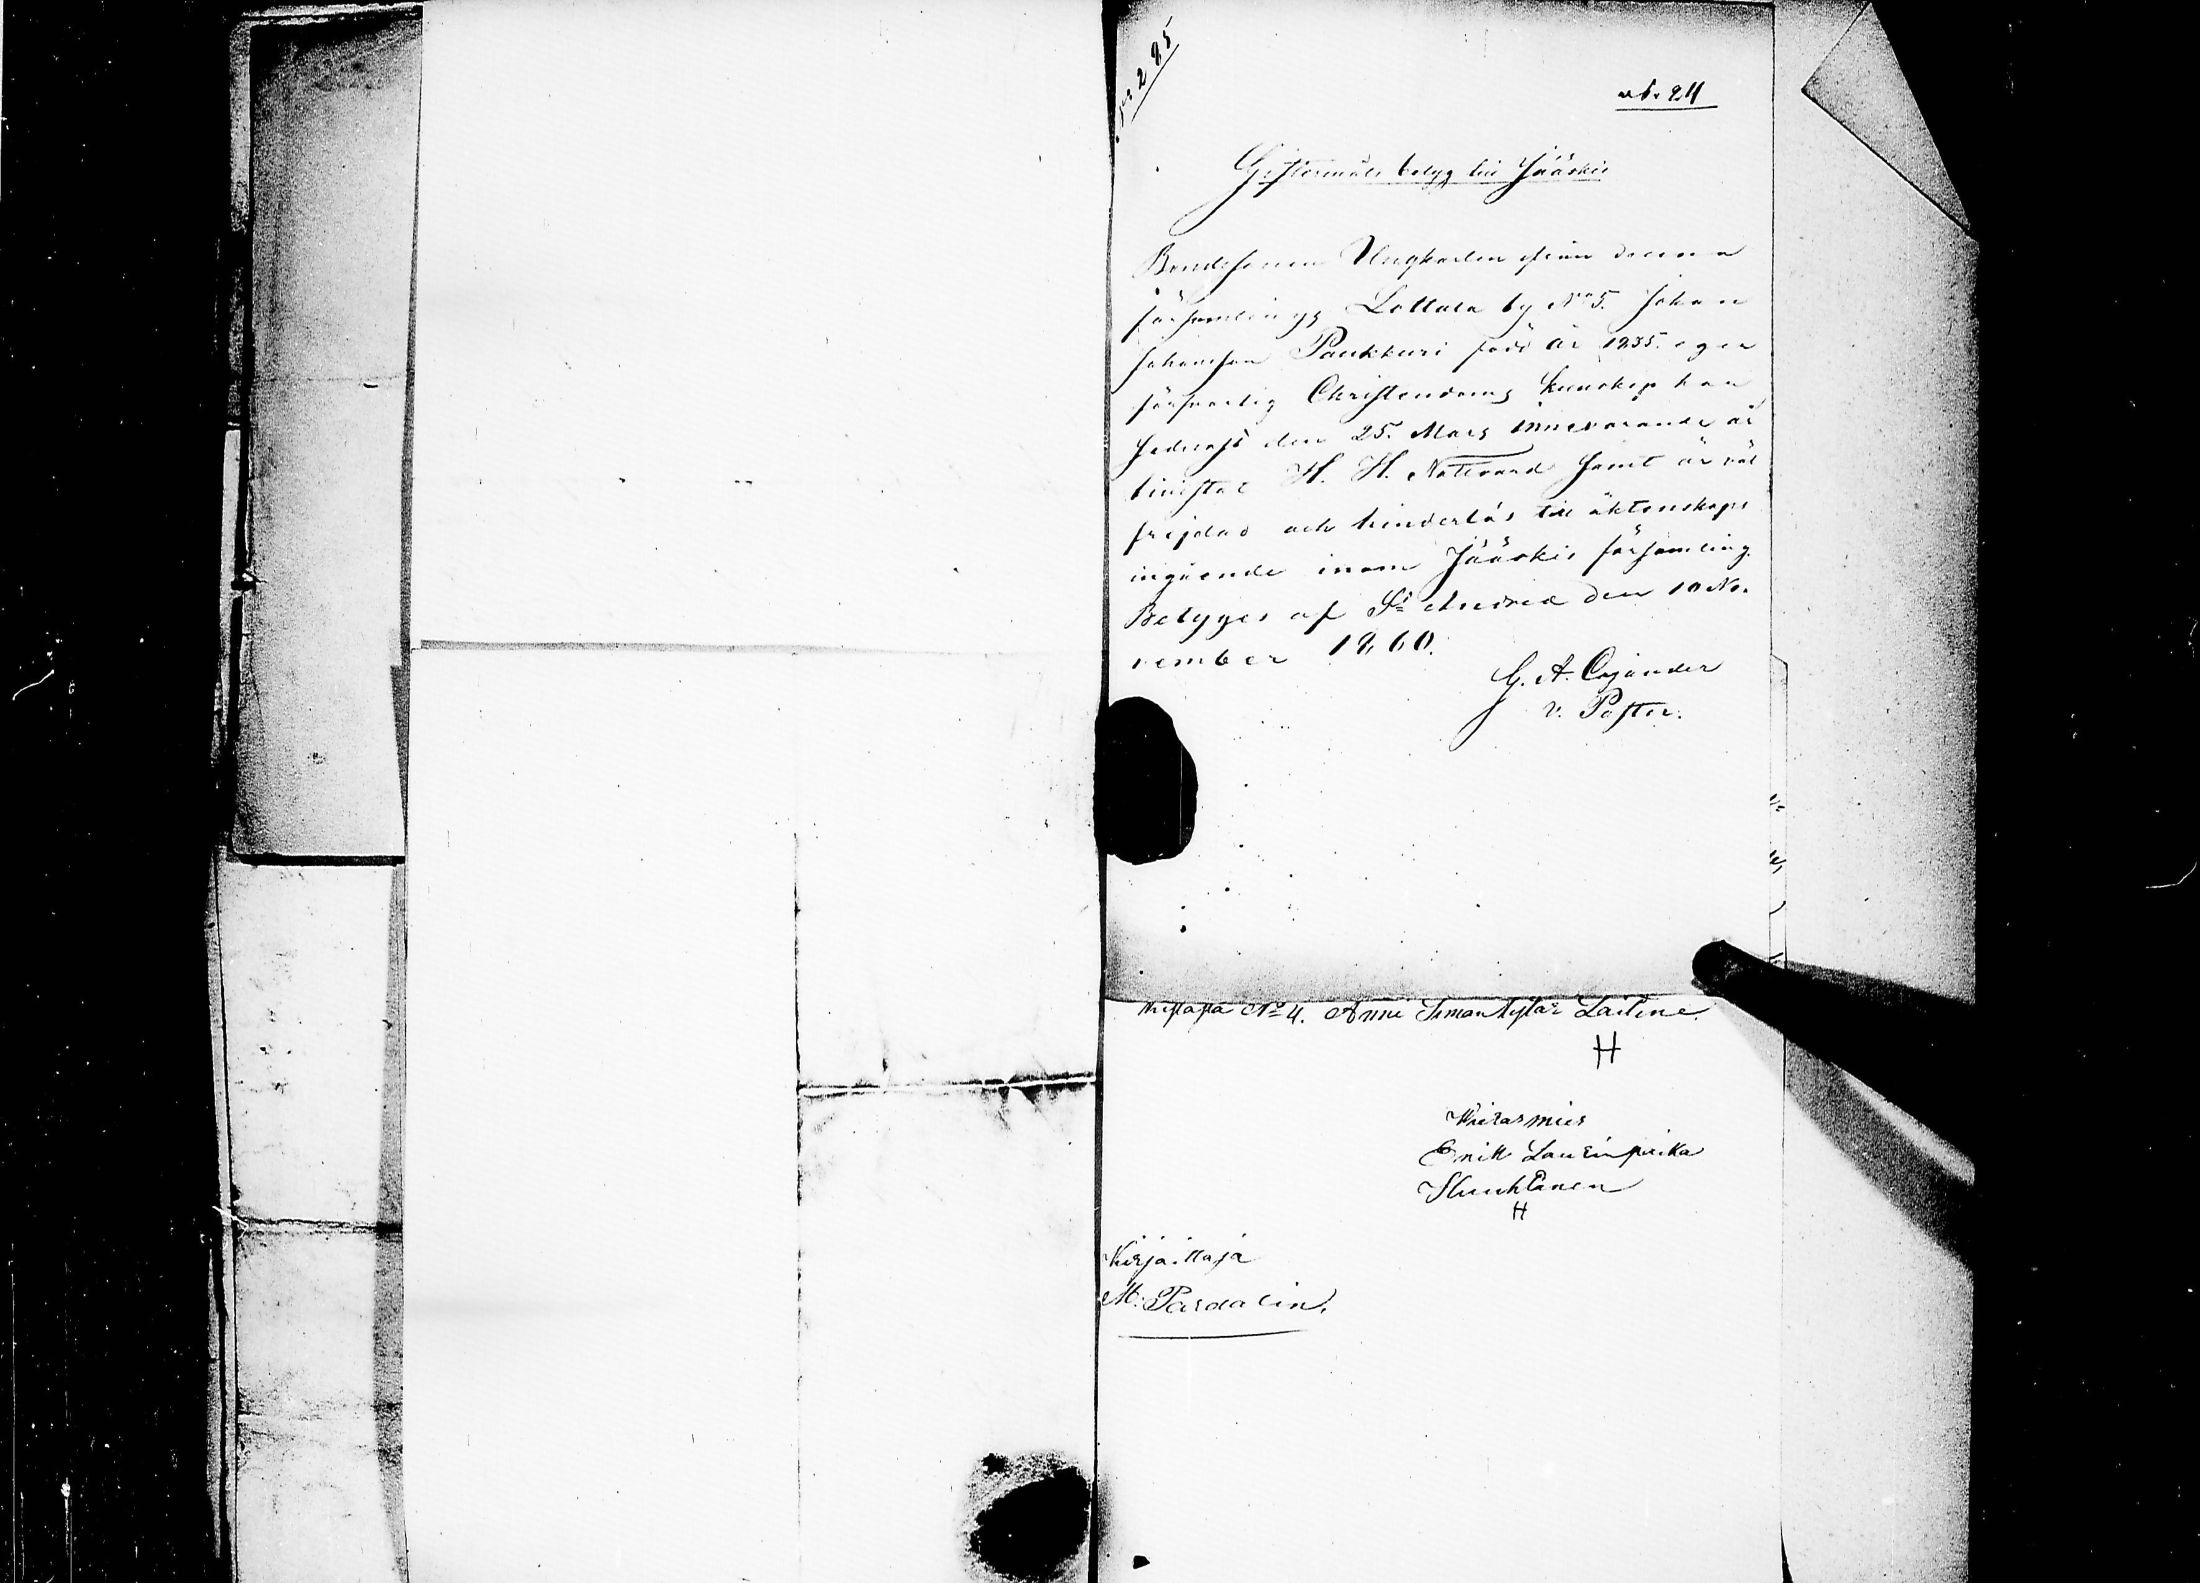 No 285
ab. 24
Giftermåls betyg till Jääskis
Bondesonen Ungkarlen från denna
församlings Lottola by No 5. Johan
Johansson Paukkuri född år 1835. eger
försvarlig Christendoms kunskap har
sednast den 25. Mars innevarande år
bivistat H. H. Nattvard samt är väl
frejdad och hinderlös till äktenskaps
ingående inom Jääskis församling.
Betygas af St Andreæ den 10 No-
vember 1860.
G. A. Cajander
v. Pastor.
No 4. Anni Simontytär Laitine.
H
Wierasmies
Erik Laurinpoika
Huuhtanen
H
Kirjoittaja
M. Pardalin.